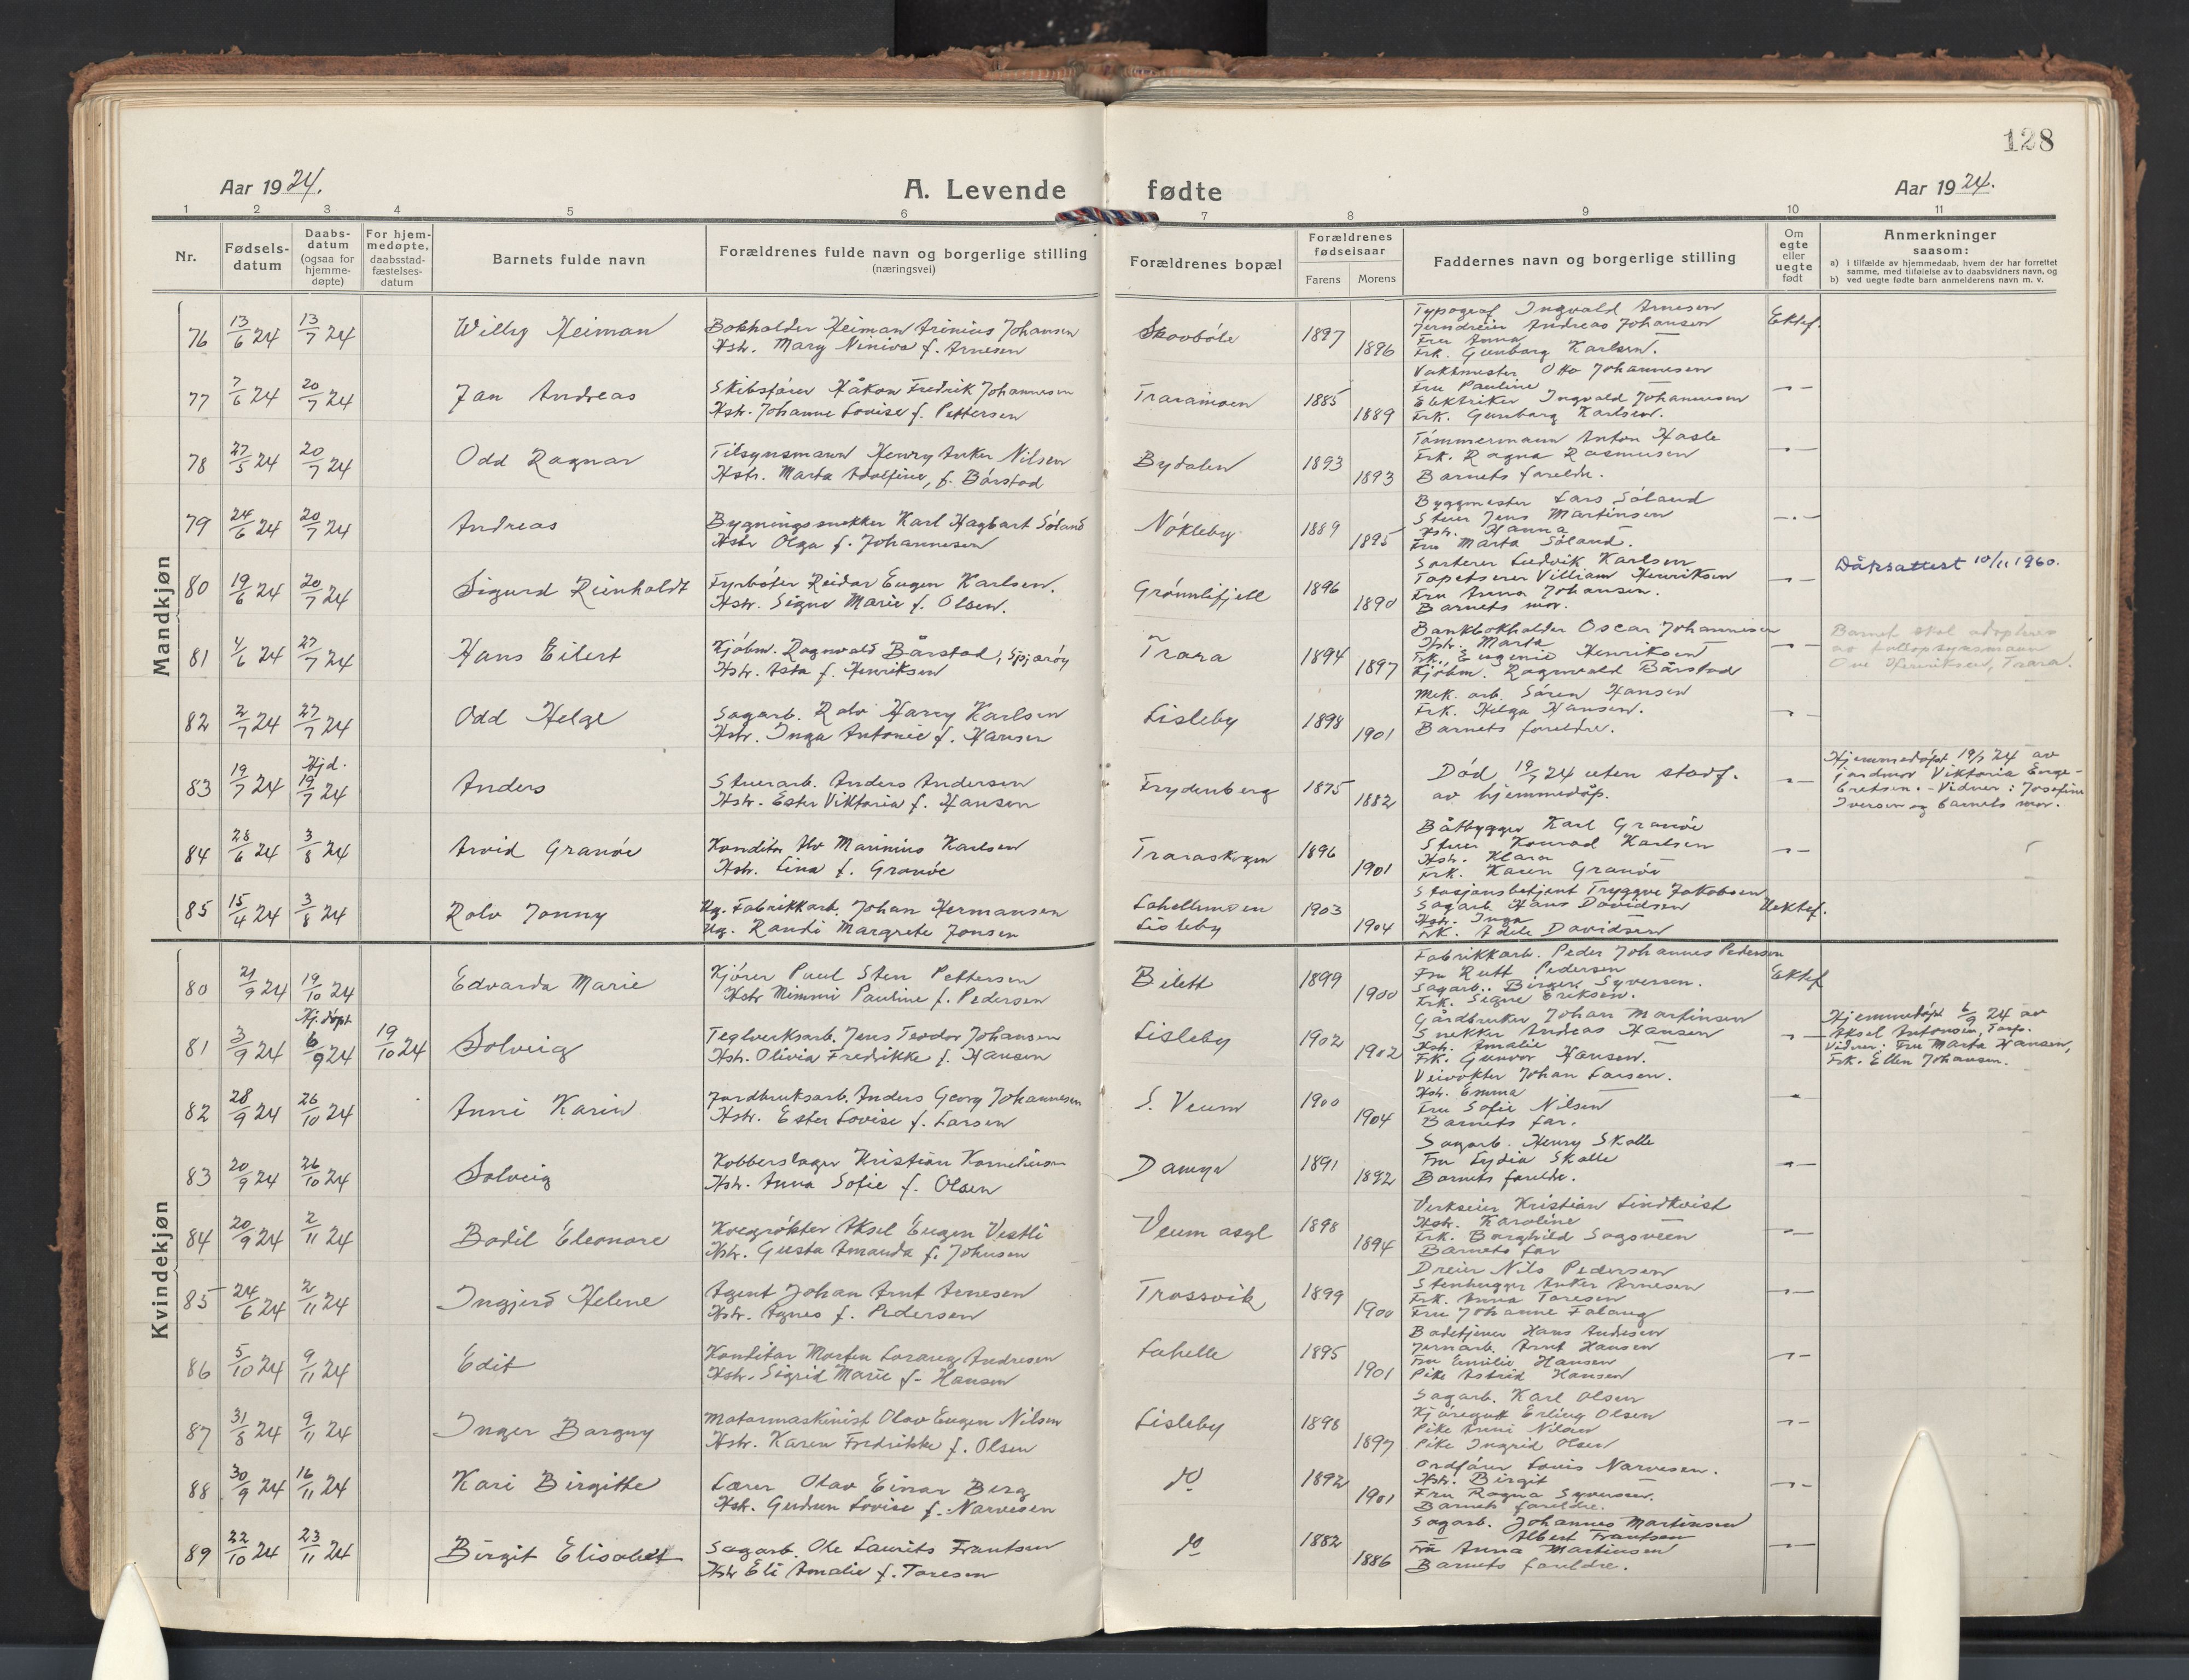 128
Aar 1924.
A. Levende fødte
Aar 1924.
1 2 3 4 5 6 7 8 9 10 11
Nr.
Fødsels-
datum
Daabs-
datum
(ogsaa for
hjemme-
døpte)
For hjem-
medøpte,
daabsstad-
fæstelses-
datum
Barnets fulde navn
Forældrenes fulde navn og borgerlige stilling
(næringsvei)
Forældrenes bopæl
Forældrenes
fødselsaar
Farens Morens
Faddernes navn og borgerlige stilling
Om
egte
eller
uegte
født
Anmerkninger
saasom:
a) i tilfælde av hjemmedaab, hvem der har forrettet
samme, med tilføielse av to daabsvidners navn, og
b) ved uegte fødte barn anmelderens navn m. v.
Mandkjøn
76 13/6 24 13/7 24 Willy Heiman
Bokholder Heiman Arinius Johansen
Hstr. Mary Niniva f. Arnesen
Skovbøle 1897 1896
Typograf Ingvald Arnesen
Jerndreier Andreas Johansen
Fru Anna
Frk. Gunborg Karlsen.
Ektef.
77 7/6 24 20/7 24 Jan Andreas
Skibsfører Håkon Fredrik Johannesen
Hstr. Johanne Lovise f. Pettersen
Traramoen 1885 1889
Vaktmester Otto Johannesen
Fru Pauline
Elektriker Ingvald Johannesen
Frk. Gunborg Karlsen.
78 27/5 24 20/7 24 Odd Ragnar
Tilsynsmann Henry Anker Nilsen
Hstr. Marta Adolfine, f. Bårstad
Bydalen 1893 1893
Tømmermann Anton Hasle
Frk. Ragna Rasmusen
Barnets foreldre.
79 24/6 24 20/7 24 Andreas
Bygningssnekker Karl Hagbart Søland
Hstr Olga f. Johannesen
Nøkleby 1889 1895
Byggmester Lars Søland
Stuer Jens Martinsen
Hstr. Hanna
Fru Marta Søland.
80 19/6 24 20/7 24 Sigurd Reinholdt
Fyrbøter Reidar Eugen Karlsen.
Hstr. Signe Marie f. Olsen.
Grønnlifjell 1896 1890
Sorterer Ludvik Karlsen
Tapetserer Villiam Henriksen
Fru Anna Johansen.
Barnets mor.
Dåpsattest 10/11 1960.
81 4/6 24 27/7 24 Hans Eilert
Kjøbm. Ragnvald Bårstad, Spjærøy
Hstr. Asta f. Henriksen
Trara 1894 1897
Bankbokholder Oscar Johannesen
Hstr. Marta
Frk. Eugenie Henriksen
Kjøbm. Ragnvald Bårstad
Barnet skal adopteres
av
Ove Henriksen, Trara.
82 2/7 24 27/7 24 Odd Helge
Sagarb. Rolv Harry Karlsen
Hstr. Inga Antonie f. Hansen
Lisleby 1898 1901
Mek. arb. Søren Hansen
Frk. Helga Hansen.
Barnets foreldre.
83 19/7 24 Hjd. 19/7 24 Anders
Stuerarb. Anders Andersen
Hstr. Ester Viktoria f. Hansen
Frydenberg 1875 1882
Død 19/7 24 uten stadf.
av hjemmedåp.
Hjemmedøpt 19/7 24 av
jordmor Viktoria Enge-
bretsen. - Vidner: Josefine
Iversen og barnets mor.
84 28/6 24 3/8 24 Arvid Granøe
Konditor Alv Marinius Karlsen
Hstr. Lina f. Granøe
Traraskogen 1896 1901
Båtbygger Karl Granøe
Stuer Konrad Karlsen
Hstr. Klara
Frk. Karen Granøe
85 15/4 24 3/8 24 Rolv Jonny
Ug. Fabrikkarb. Johan Hermansen
Ug. Randi Margrete Jonsen
Lahellemoen
Lisleby 1903 1904
Stasjonsbetjent Tryggve Jakobsen
Sagarb. Hans Davidsen
Hstr. Inga
Frk. Adele Davidsen
Uektef.
Kvindekjøn
80 21/9 24 19/10 24 Edvarda Marie
Kjører Paul Sten Pettersen
Hstr Mimmi Pauline f. Pedersen
Bilett 1899 1900
Fabrikkarb. Peder Johannes Pedersen
Fru Rutt Pedersen
Sagarb. Birger Syversen.
Frk. Signe Eriksen.
Ektef
81 3/9 24 Hj.døpt 6/9 24 19/10 24 Solveig
Teglverksarb. Jens Teodor Johansen
Hstr. Olivia Fredrikke f. Hansen
Lisleby 1902 1902
Gårdbruker Johan Martinsen
Snekker Andreas Hansen
Hstr. Amalie
Frk. Gunvor Hansen.
Hjemmedøpt 6/9 24 av
Aksel Antonsen, Torp.
Vidner: Fru Marta Hansen,
Frk. Ellen Johansen.
82 28/9 24 26/10 24 Anni Karin
Jordbruksarb. Anders Georg Johannesen
Hstr. Ester Lovise f. Larsen
S. Veum 1900 1904
Veivokter Johan Larsen.
Hstr. Emma
Fru Sofie Nilsen
Barnets far.
83 20/9 24 26/10 24 Solveig
Kobberslager Kristian Kornelius​en
Hstr. Anna Sofie f. Olsen
Damyr 1891 1892
Sagarb. Henry Skolle
Fru Lydia Skolle
Barnets foreldre.
84 20/9 24 2/11 24 Bodil Eleonore
Kvegrøkter Aksel Eugen Vestli
Hstr. Gusta Amanda f. Johnsen
Veum asyl 1898 1894
Verkseier Kristian Lindkvist
Hstr. Karoline
Frk. Borghild Sagsveen
Barnets far
85 24/6 24 2/11 24 Ingjerd Helene
Agent Johan Arnt Arnesen
Hstr. Agnes f. Pedersen
Trossvik 1899 1900
Dreier Nils Pedersen
Stenhugger Anker Arnesen
Frk. Anna Toresen
Fru Johanne Falang
86 5/10 24 9/11 24 Edit
Konditor Morten Lorang Andresen
Hstr. Sigrid Marie f. Hansen
Lahelle 1895 1901
Badetjener Hans Andresen
Jernarb. Arnt Hansen
Fru Emilie Hansen
Pike Astrid Hansen
87 31/8 24 9/11 24 Inger Borgny
Motormaskinist Olav Eugen Nilsen
Hstr. Karen Fredrikke f. Olsen
Lisleby 1898 1897
Sagarb. Karl Olsen
Kjøregutt Erling Olsen
Pike Anni Nilsen
Pike Ingrid Olsen
88 30/9 24 16/11 24 Kari Birgitte
Lærer Olav Einar Berg
Hstr. Gudrun Lovise f. Narvesen
do 1892 1901
Ordfører Louis Narvesen.
Hstr. Birgit
Fru Ragna Syversen.
Barnets foreldre.
89 22/10 24 23/11 24 Birgit Elisabet
Sagarb. Ole Laurits Frantsen
Hstr Eli Amalie f. Toresen
do 1882 1886
Sagarb. Johannes Martinsen
Albert Frantsen
Fru Anna Martinsen
Barnets foreldre.